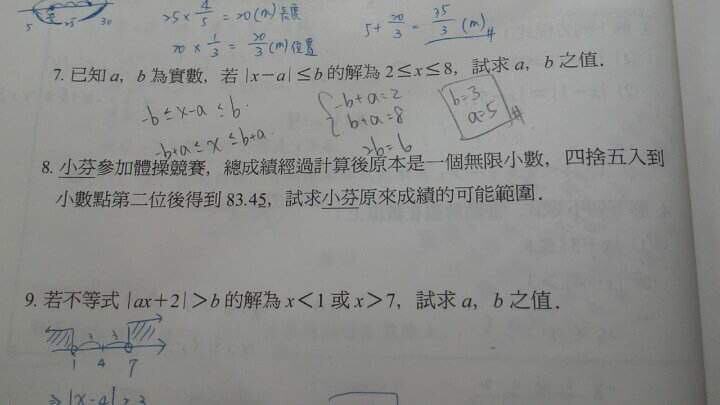 25 × 4/5 = 20 (m) 長度
5 25 30
20 × 1/3 = 20/3 (m) 位置
5 + 20/3 = 35/3 (m) #
7. 已知 a，b 為實數，若 |x－a|≤b 的解為 2≤x≤8，試求 a，b 之值．
-b ≤ x-a ≤ b
-b+a ≤ x ≤ b+a
-b+a=2
b+a=8
2b=6
b=3
a=5 #
8. 小芬參加體操競賽，總成績經過計算後原本是一個無限小數，四捨五入到
小數點第二位後得到 83.45，試求小芬原來成績的可能範圍．
9. 若不等式 |ax＋2|＞b 的解為 x＜1 或 x＞7，試求 a，b 之值．
3 3
1 4 7
⇒ |x-4| > 3